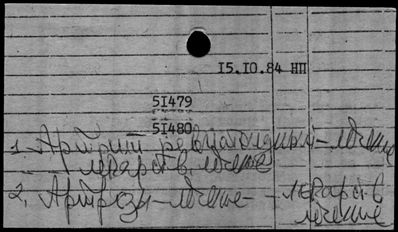 15.10.84 НП
51479
51480
1. Артрит ревматоидный – лечение
– лекарств. лечение
2. Артрозы – лечение – лекарств
лечение